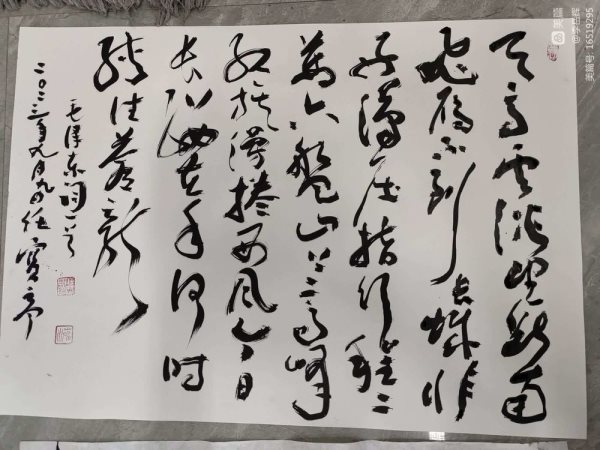 天高雲淡望断南
飛雁不到长城非
好漢屈指行程二
萬六盤山上高峰
红旗漫捲西风今日
长缨在手何时
缚住苍龙
毛泽东词一首
二〇二三年九月九日任
美篇
美篇号: 16519295